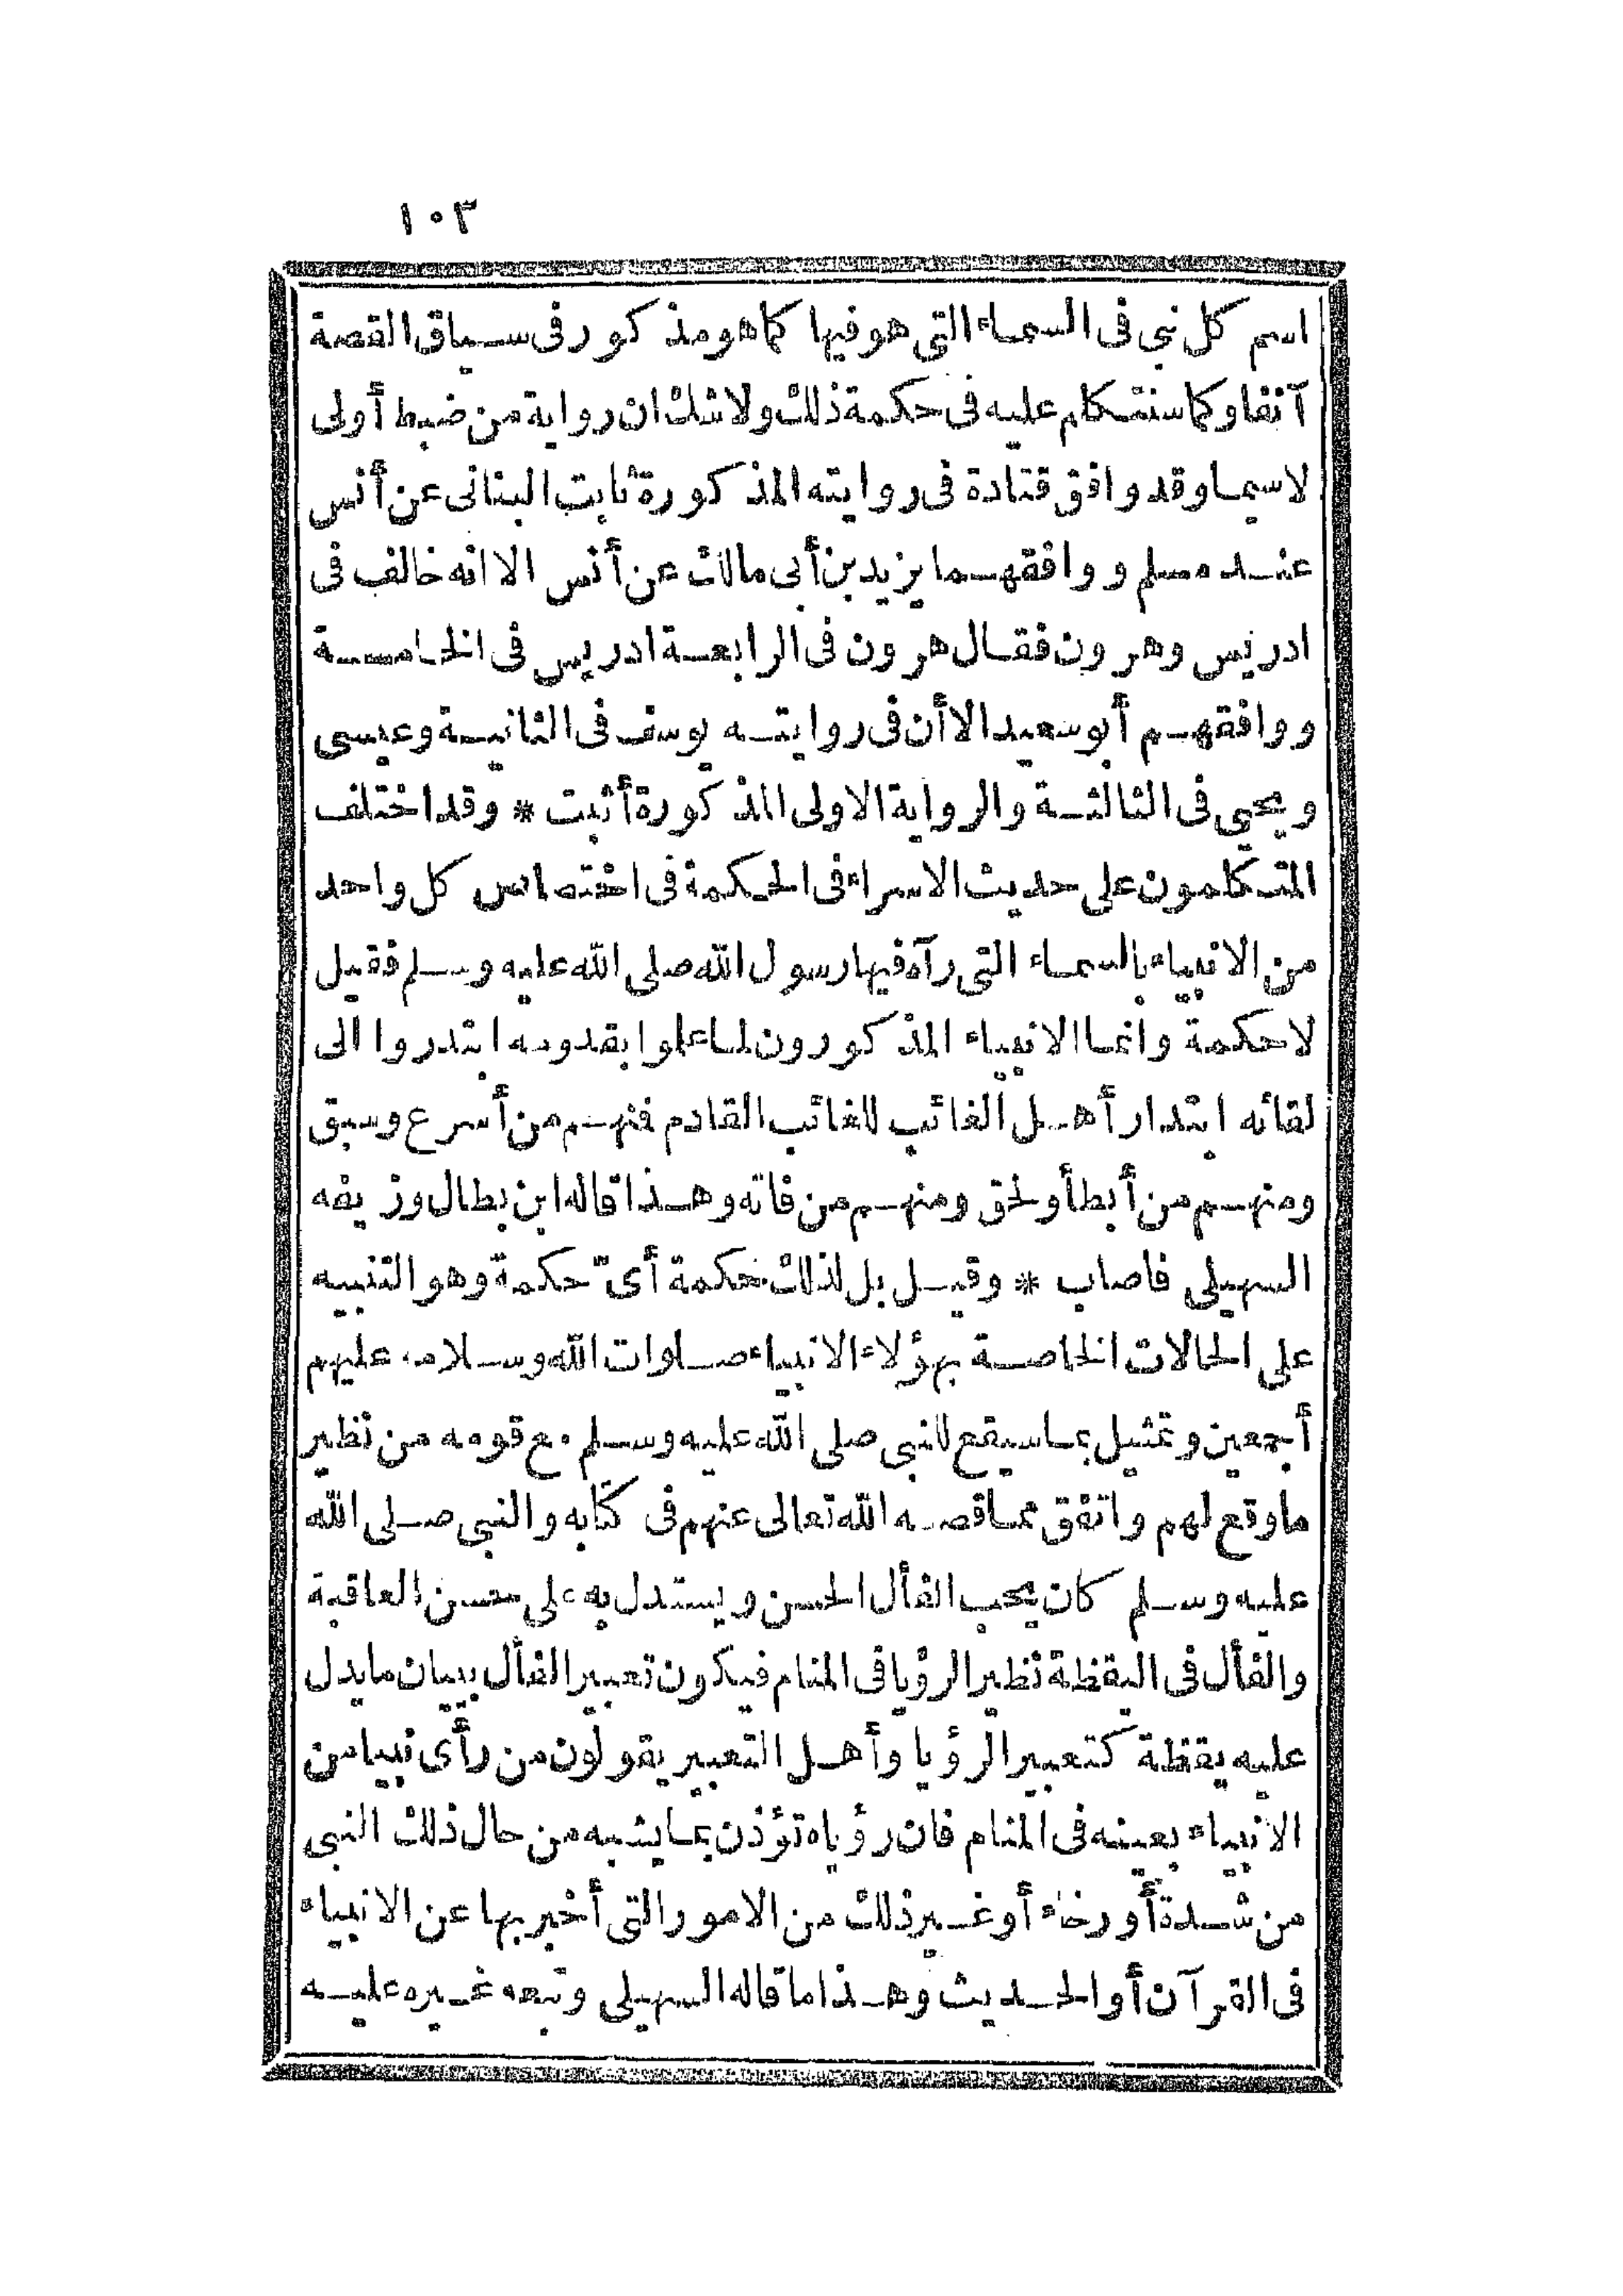 ١٠٣
اسم كل نبي فى السماء التى هو فيها كما هو مذكور فى سياق القصة
آنفا وكما سنتكلم عليه فى حكمة ذلك ولا شك ان رواية من ضبط أولى
لاسيما وقد وافق قتادة فى روايته المذكورة ثابت البنانى عن أنس
عند مسلم ووافقهما يزيد بن أبى مالك عن أنس الا انه خالف فى
ادريس وهرون فقال هرون فى الرابعة ادريس فى الخامسة
ووافقهم أبو سعيد الا أن فى روايته يوسف فى الثانية وعيسى
ويحيى فى الثالثة والرواية الاولى المذكورة أثبت * وقد اختلف
المتكلمون على حديث الاسراء فى الحكمة فى اختصاص كل واحد
من الانبياء بالسماء التى رآه فيها رسول الله صلى الله عليه وسلم فقيل
لا حكمة وانما الانبياء المذكورون لما علموا بقدومه ابتدروا الى
لقائه ابتدار أهل الغائب للغائب القادم فمنهم من أسرع وسبق
ومنهم من أبطأ ولحق ومنهم من فاته وهذا قاله ابن بطال وزيفه
السهيلى فاصاب * وقيل بل لذلك حكمة أىّ حكمة وهو التنبيه
على الحالات الخاصة بهؤلاء الانبياء صلوات الله وسلامه عليهم
أجمعين وتمثيل بما سيقع للنبى صلى الله عليه وسلم مع قومه من نظير
ما وقع لهم واتفق مما قصه الله تعالى عنهم فى كتابه والنبى صلى الله
عليه وسلم كان يحب الفأل الحسن ويستدل به على حسن العاقبة
والفأل فى اليقظة نظير الرؤيا فى المنام فيكون تعبير الفأل ببيان ما يدل
عليه يقظة كتعبير الرؤيا وأهل التعبير يقولون من رأى نبيا من
الانبياء بعينه فى المنام فان رؤياه تؤذن بما يشبه من حال ذلك النبى
من شدة أو رخاء أو غير ذلك من الامور التى أخبر بها عن الانبياء
فى القرآن أو الحديث وهذا ما قاله السهيلى وتبعه غيره عليه